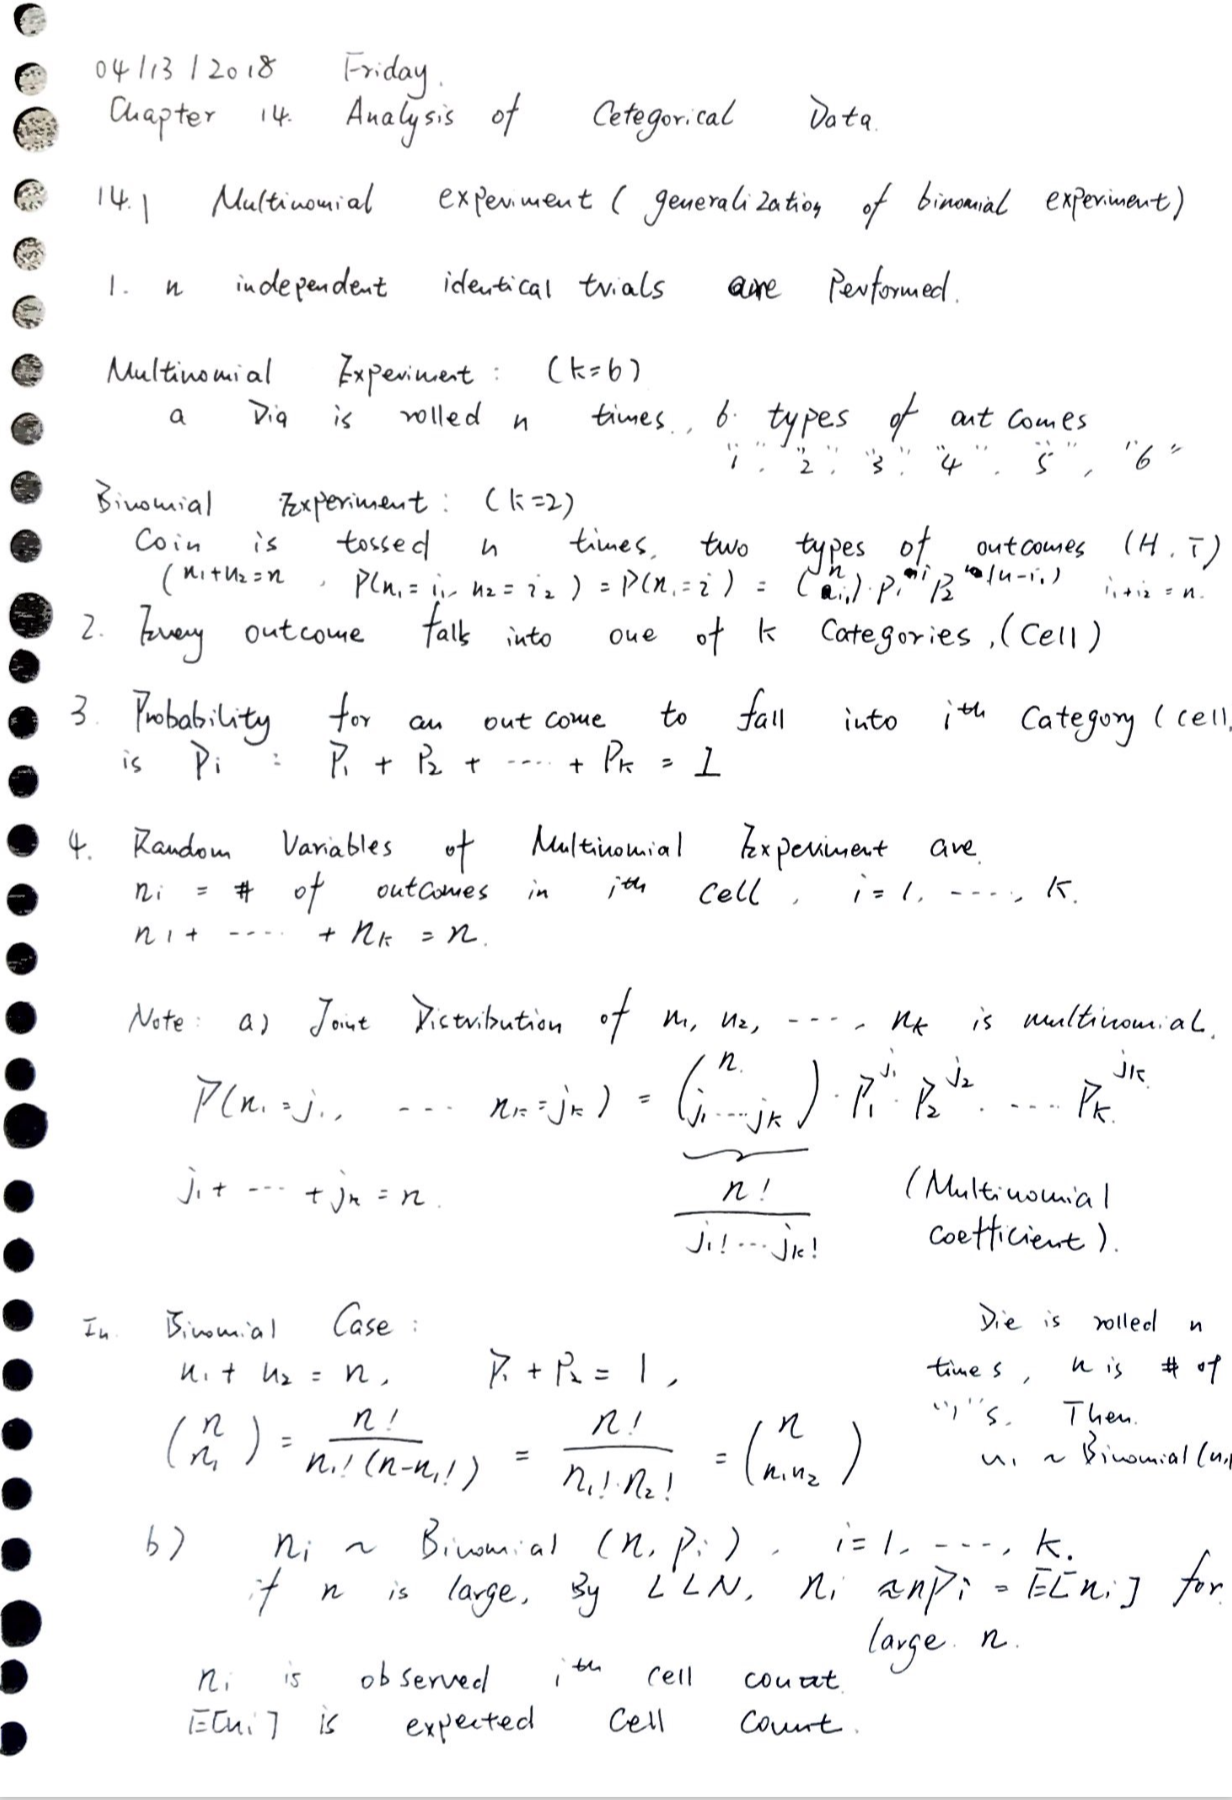 04/13/2018 Friday.
Chapter 14. Analysis of Cetegorical Data.
14.1 Multinomial experiment (generalization of binomial experiment)
1. n independent identical trials are Performed.
Multinomial Experiment: (k=6)
a Dia is rolled n times., 6. types of out comes
"1". "2". "3". "4". "5", "6"
Binomial Experiment: (k=2)
Coin is tossed n times, two types of outcomes (H. T)
(n₁+n₂=n , P(n₁=i₁, n₂=i₂) = P(n₁=i) = (n i₁)·P₁^i P₂^(n-i₁) i₁+i₂=n.
2. Every outcome falls into one of k Categories, (Cell)
3. Probability for an out come to fall into iᵗʰ Category (cell,
is Pi : P₁ + P₂ + ---- + Pₖ = 1
4. Random Variables of Multinomial Experiment are.
ni = # of outcomes in iᵗʰ cell, i=1, ----, k.
n₁+ ---- + nₖ = n.
Note: a) Joint Distribution of n₁, n₂, ---, nₖ is multinomial.
P(n₁=j₁, --- nₖ=jₖ) = (n j₁---jₖ)·P₁^j₁·P₂^j₂. ---- Pₖ^jₖ
j₁+ --- +jₖ = n. n!/(j₁!···jₖ!) (Multinomial
coefficient).
In Binomial Case:
n₁+n₂=n, P₁+P₂=1,
(n n₁) = n!/(n₁!(n-n₁!)) = n!/(n₁!·n₂!) = (n n₁n₂)
Die is rolled n
times, n is # of
"1"s. Then.
n₁ ~ Binomial (n,
b) ni ~ Binomial (n, pi), i=1, ---, k.
if n is large, By LLN, ni ≈ nPi = E[ni] for
large n.
ni is observed iᵗʰ cell count.
E[ni] is expected cell count.